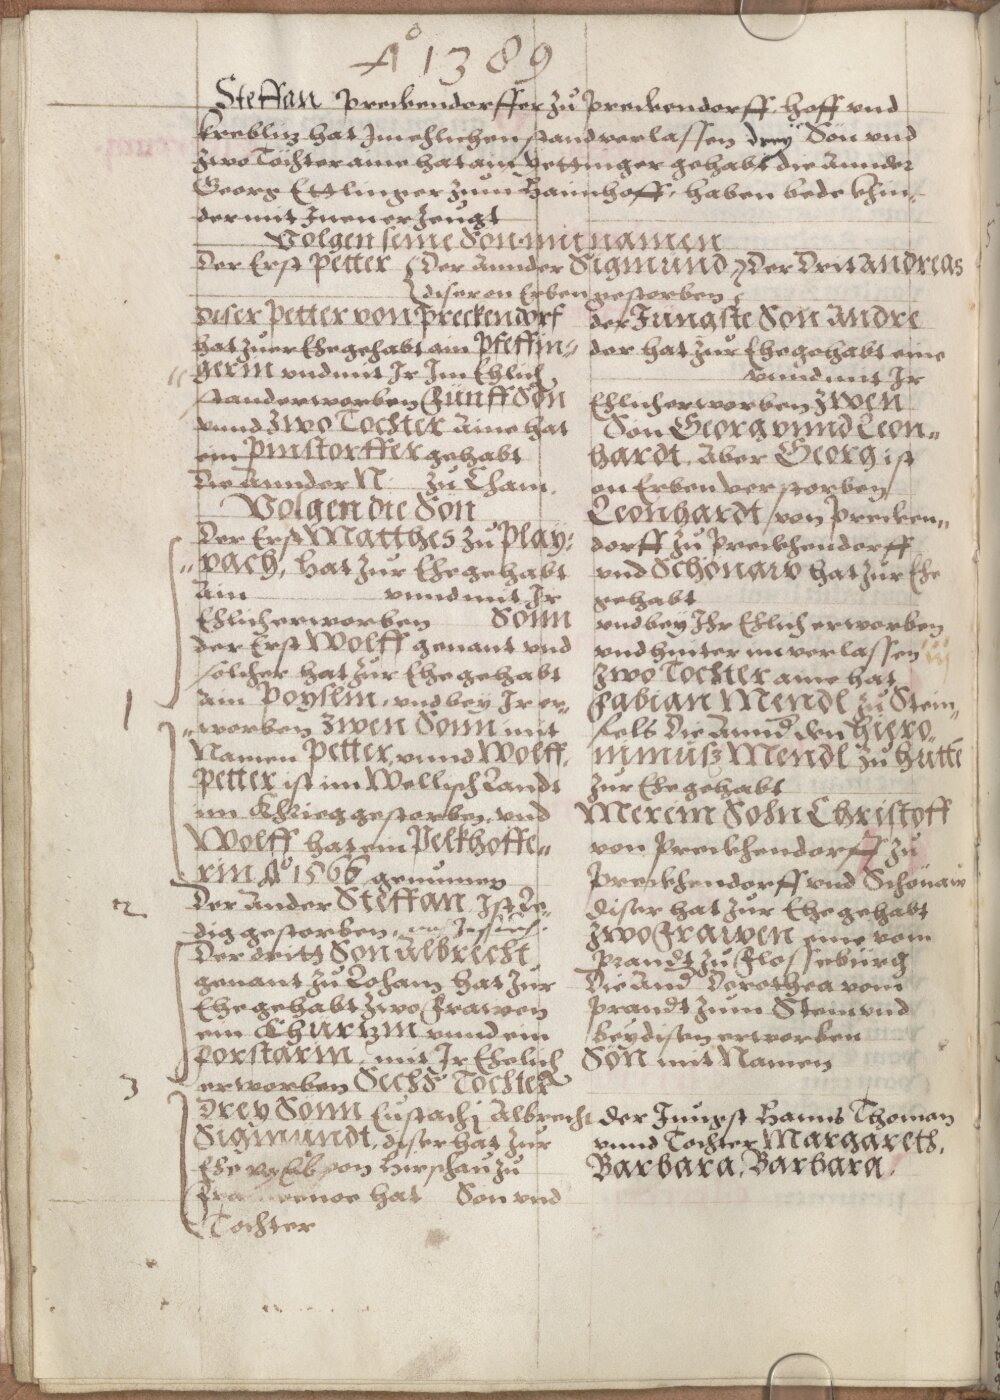 Aº 1389
Steffan Preckendorffer zu Preckendorff, Hoff vnd
Krebliz hat Im ehlichen stand verlassen drey Sön vnd
zwo Töchter aine hat ain Pettinger gehabt die annder
Georg Ettlinger zum Haimhoff, haben bede Khin-
der mit Inen erzeugt
Volgen seine Son mit namen
Der Erst Petter Der annder Sigmund Der Drit Andreas
diser on Erben gestorben
Diser Petter von Preckendorf
hat zuer Ehe gehabt ain Pfeffin-
gerin vnd mit Ir Im Ehlich
stand erworben Fünff Sön
vnnd zwo Tochter Aine hat
ein Pinstorffer gehabt
Die Annder N. zu Cham.
Volgen die Sön
Der Erst Matthes zu Play-
pach, hat zur Ehe gehabt
Ain vnnd mit Ir
Ehlich erworben Sonn
der Erst Wolff genant vnd
solcher hat zur Ehe gehabt
1 ain Poyslin, vnd bey Ir er-
worben zwen Sonn mit
Namen Petter, vnnd Wolff.
Petter ist im Wellisch Landt
im Khrieg gestorben, vnd
Wolff hat ein Pelkhoffe-
rin Aº 1566 genumen
2 Der Ander Steffan Ist Le-
dig gestorben
Der dritt Son Albrecht
genant zu Loham hat zur
Ehe gehabt zwo Frawen
ein Khürtzin vnnd ein
Porstarin mit Ir Ehelich
3 erworben Sechs Tochter
Drey Sonn Eustachj Albrecht
Sigmundt, diser hat zur
Ehe von Hirschau zu
hat Son vnd
Tochter
der Jungste Son Andre
der hat zur Ehe gehabt eine
vnnd mit Ir
Ehlich erworben zwen
Son Georg vnnd Leon-
hardt, Aber Georg ist
on Erben verstorben
Leonhardt von Precken-
dorff zu Preckhendorff
vnd Schönaw hat zur Ehe
gehabt
vnd bey Ihr Ehlich erworben
vnd hinter im verlassen iii
zwo Tochter aine hat
Fabian Mendl zu Stein-
fels Die Annd den Hiero-
nimuß Mendl zu Hütte
zur Ehe gehabt
Merem Sohn Christoff
von Preckhendorff zu
Preckhendorff vnd Schönaw
diser hat zur Ehe gehabt
zwo Frawen eine vom
Prandt zu Flosseburg
Die And Dorothea vom
Prandt zum Stein vnd
bey disen erworben
Son mit Namen
der Jungst Hanns Thoman
vnnd Tochter Margareth,
Barbara, Barbara.